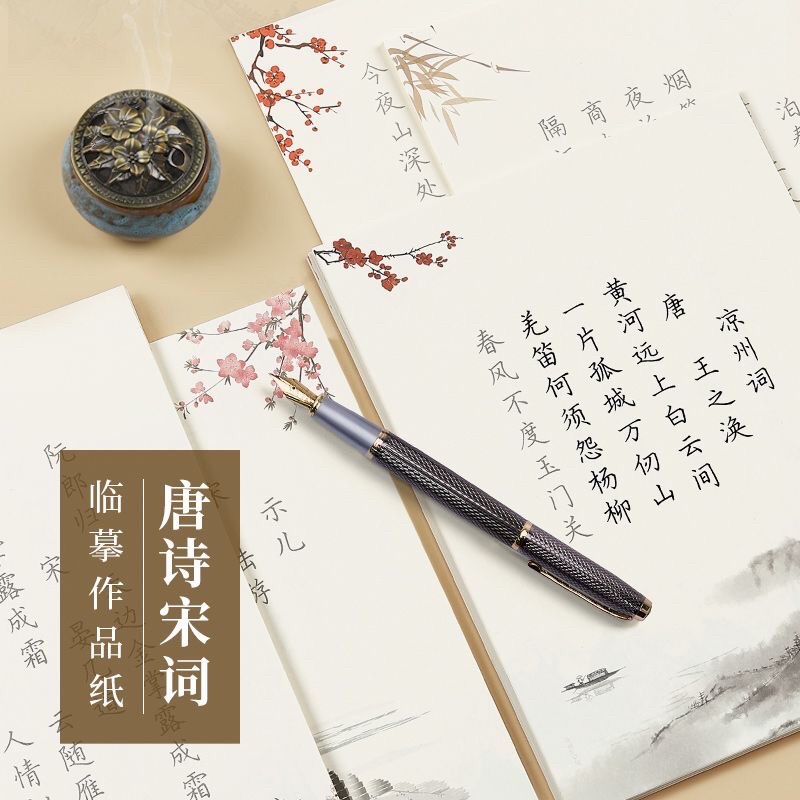 唐诗宋词
临摹作品纸
凉州词
唐 王之涣
黄河远上白云间
一片孤城万仞山
羌笛何须怨杨柳
春风不度玉门关
烟笼
夜泊
商
隔
泊
今夜山深处
示儿
宋
阮郎归
宋 晏几道
天边金掌露成霜
云随雁
露成霜
人情